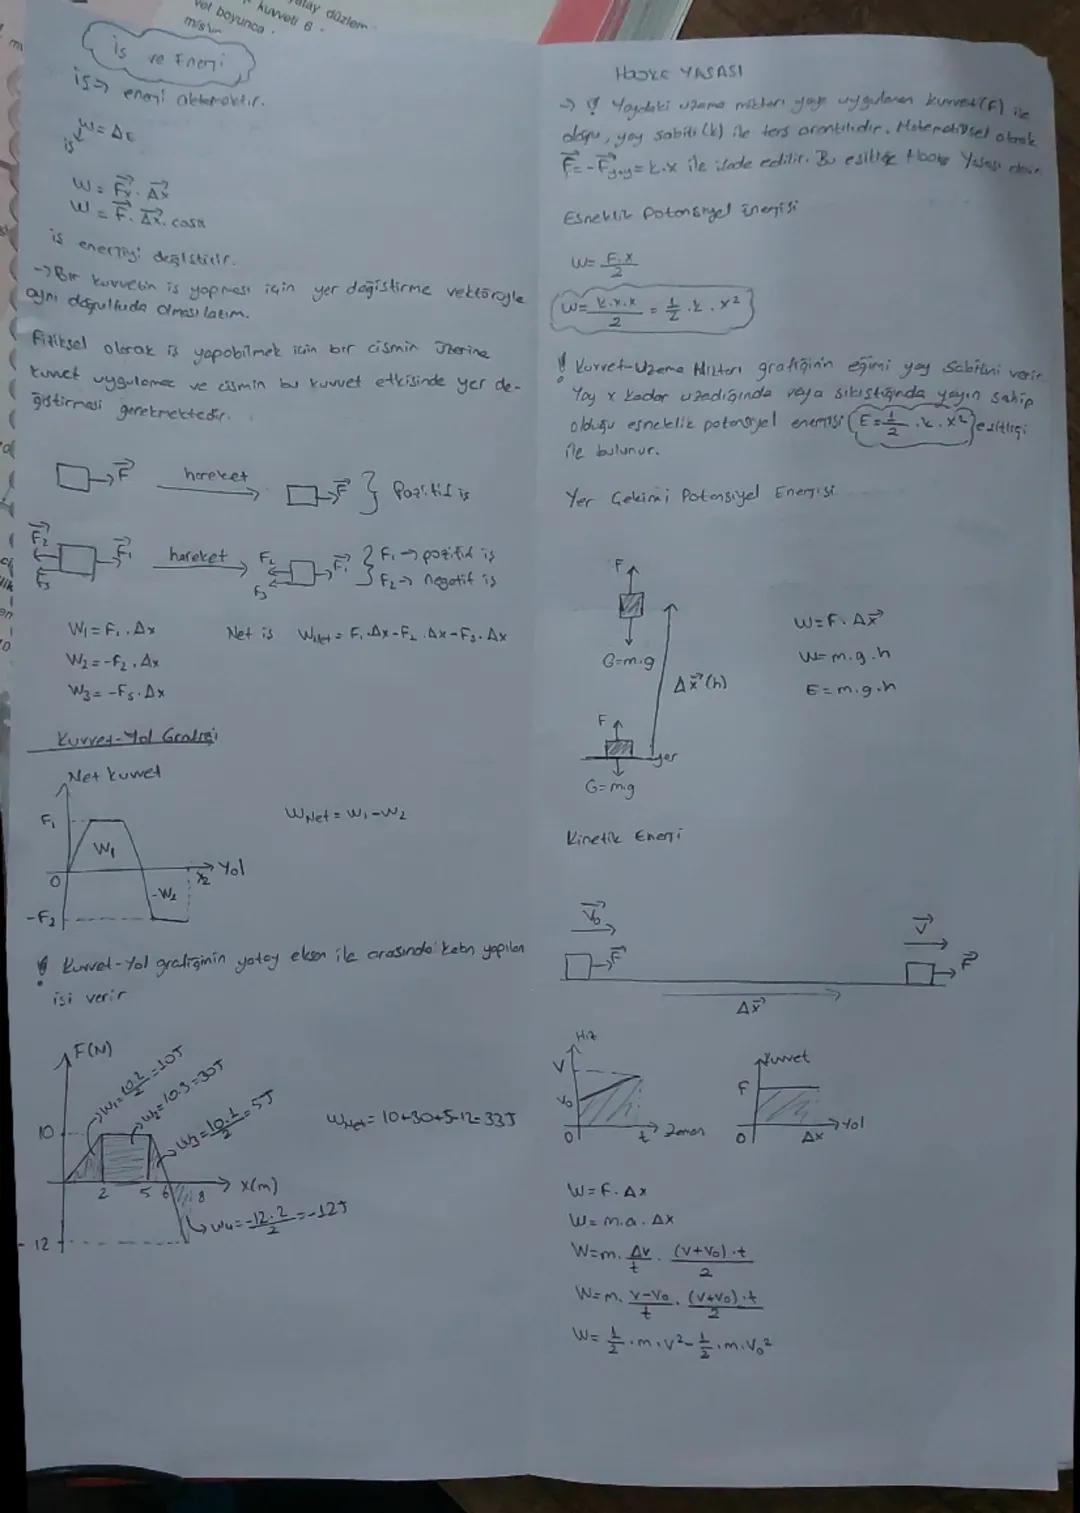 yatay düzlem
kuvveti 6
vet boyunca
m/s
İş ve Enerji
iş => enerji aktarmaktır.
W = ΔE
iş
W = Fx . Δx
W = F . Δx . cosα
iş enerjiyi değiştirir.
-> Bir kuvvetin iş yapması için yer değiştirme vektörüyle
aynı doğrultuda olması lazım.
Fiziksel olarak iş yapabilmek için bir cismin üzerine
kuvvet uygulamak ve cismin bu kuvvet etkisinde yer de-
ğiştirmesi gerekmektedir.
F hareket F } Pozitif iş
F2 F1 F3 hareket F2 F1 F3 } F1 -> pozitif iş
F2 -> negatif iş
W1 = F1 . Δx Net iş WNet = F1.Δx - F2.Δx - F3.Δx
W2 = -F2 . Δx
W3 = -F3 . Δx
Kuvvet-Yol Grafiği
Net kuvvet
F1
W1
WNet = W1 - W2
0 x2 Yol
-W2
-F2
! Kuvvet-Yol grafiğinin yatay eksen ile arasında kalan yapılan
işi verir
F(N)
W1 = 10.2/2 = 10J
W2 = 10.3 = 30J
W3 = 10.1/2 = 5J
WNet = 10+30+5-12 = 33J
10
2 5 6 8 X(m)
W4 = -12.2/2 = -12J
-12
Hooke YASASI
-> ! Yaydaki uzama miktarı yaya uygulanan kuvvet(F) ile
doğru, yay sabiti (k) ile ters orantılıdır. Matematiksel olarak
F = -Fyay = k.x ile ifade edilir. Bu eşitliğe Hooke Yasası denir
Esneklik Potansiyel Enerjisi
W = F.x/2
W = k.x.x/2 = 1/2 . k . x²
! Kuvvet-Uzama Miktarı grafiğinin eğimi yay sabitini verir
Yay x kadar uzadığında veya sıkıştığında yayın sahip
olduğu esneklik potansiyel enerjisi (E = 1/2 . k . x²) eşitliği
ile bulunur.
Yer Çekimi Potansiyel Enerjisi
F
G = m.g
Δx (h)
F
yer
G = mg
W = F . Δx
W = m.g.h
E = m.g.h
Kinetik Enerji
V0 V
F F
Δx
Hız
V
V0
0 t Zaman
Kuvvet
F
0 Δx Yol
W = F . Δx
W = m.a . Δx
W = m . Δv/t . (V+V0).t/2
W = m . V-V0/t . (V+V0).t/2
W = 1/2 . m . V² - 1/2 . m . V0²